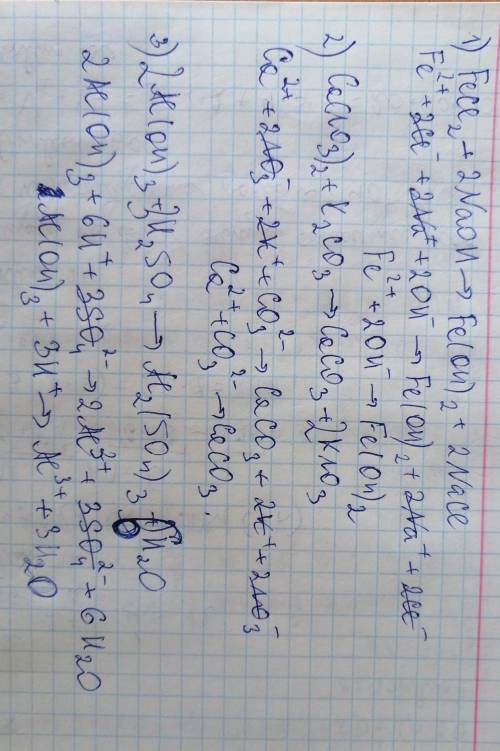 1) FeCl₂ + 2NaOH → Fe(OH)₂ + 2NaCl
Fe²⁺ + 2Cl⁻ + 2Na⁺ + 2OH⁻ → Fe(OH)₂ + 2Na⁺ + 2Cl⁻
Fe²⁺ + 2OH⁻ → Fe(OH)₂
2) Ca(NO₃)₂ + K₂CO₃ → CaCO₃ + 2KNO₃
Ca²⁺ + 2NO₃⁻ + 2K⁺ + CO₃²⁻ → CaCO₃ + 2K⁺ + 2NO₃⁻
Ca²⁺ + CO₃²⁻ → CaCO₃.
3) 2Al(OH)₃ + 3H₂SO₄ → Al₂(SO₄)₃ + 6H₂O
2Al(OH)₃ + 6H⁺ + 3SO₄²⁻ → 2Al³⁺ + 3SO₄²⁻ + 6H₂O
Al(OH)₃ + 3H⁺ → Al³⁺ + 3H₂O